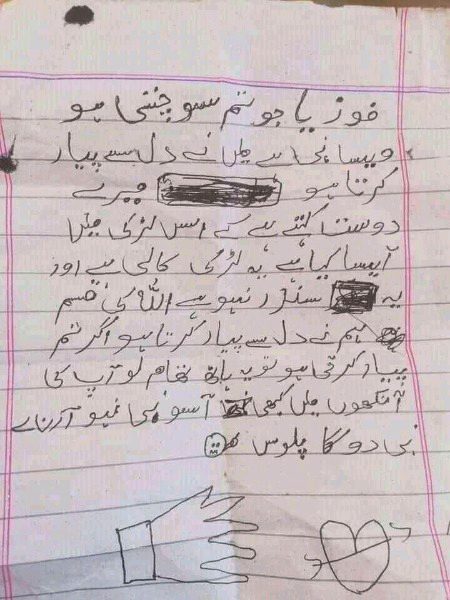 فوزیا جو تم سوچتی ہو
ویسا نہی ہے میں نے دل سے پیار
کرتا ہو میرے
دوست کہتے ہے کے اس لڑکی میں
آیسا کیا ہے یہ لڑکی کالی ہے اور
یہ سندر نہو ہے اللہ کی قسم
ہم نے دل سے پیار کرتا ہو اگر تم
پیار کرتی ہو تو یہ ہاتھ تھام لو آپ کی
آنکھوں میں کبھی آسو نہی
نہی دو گا پلوس